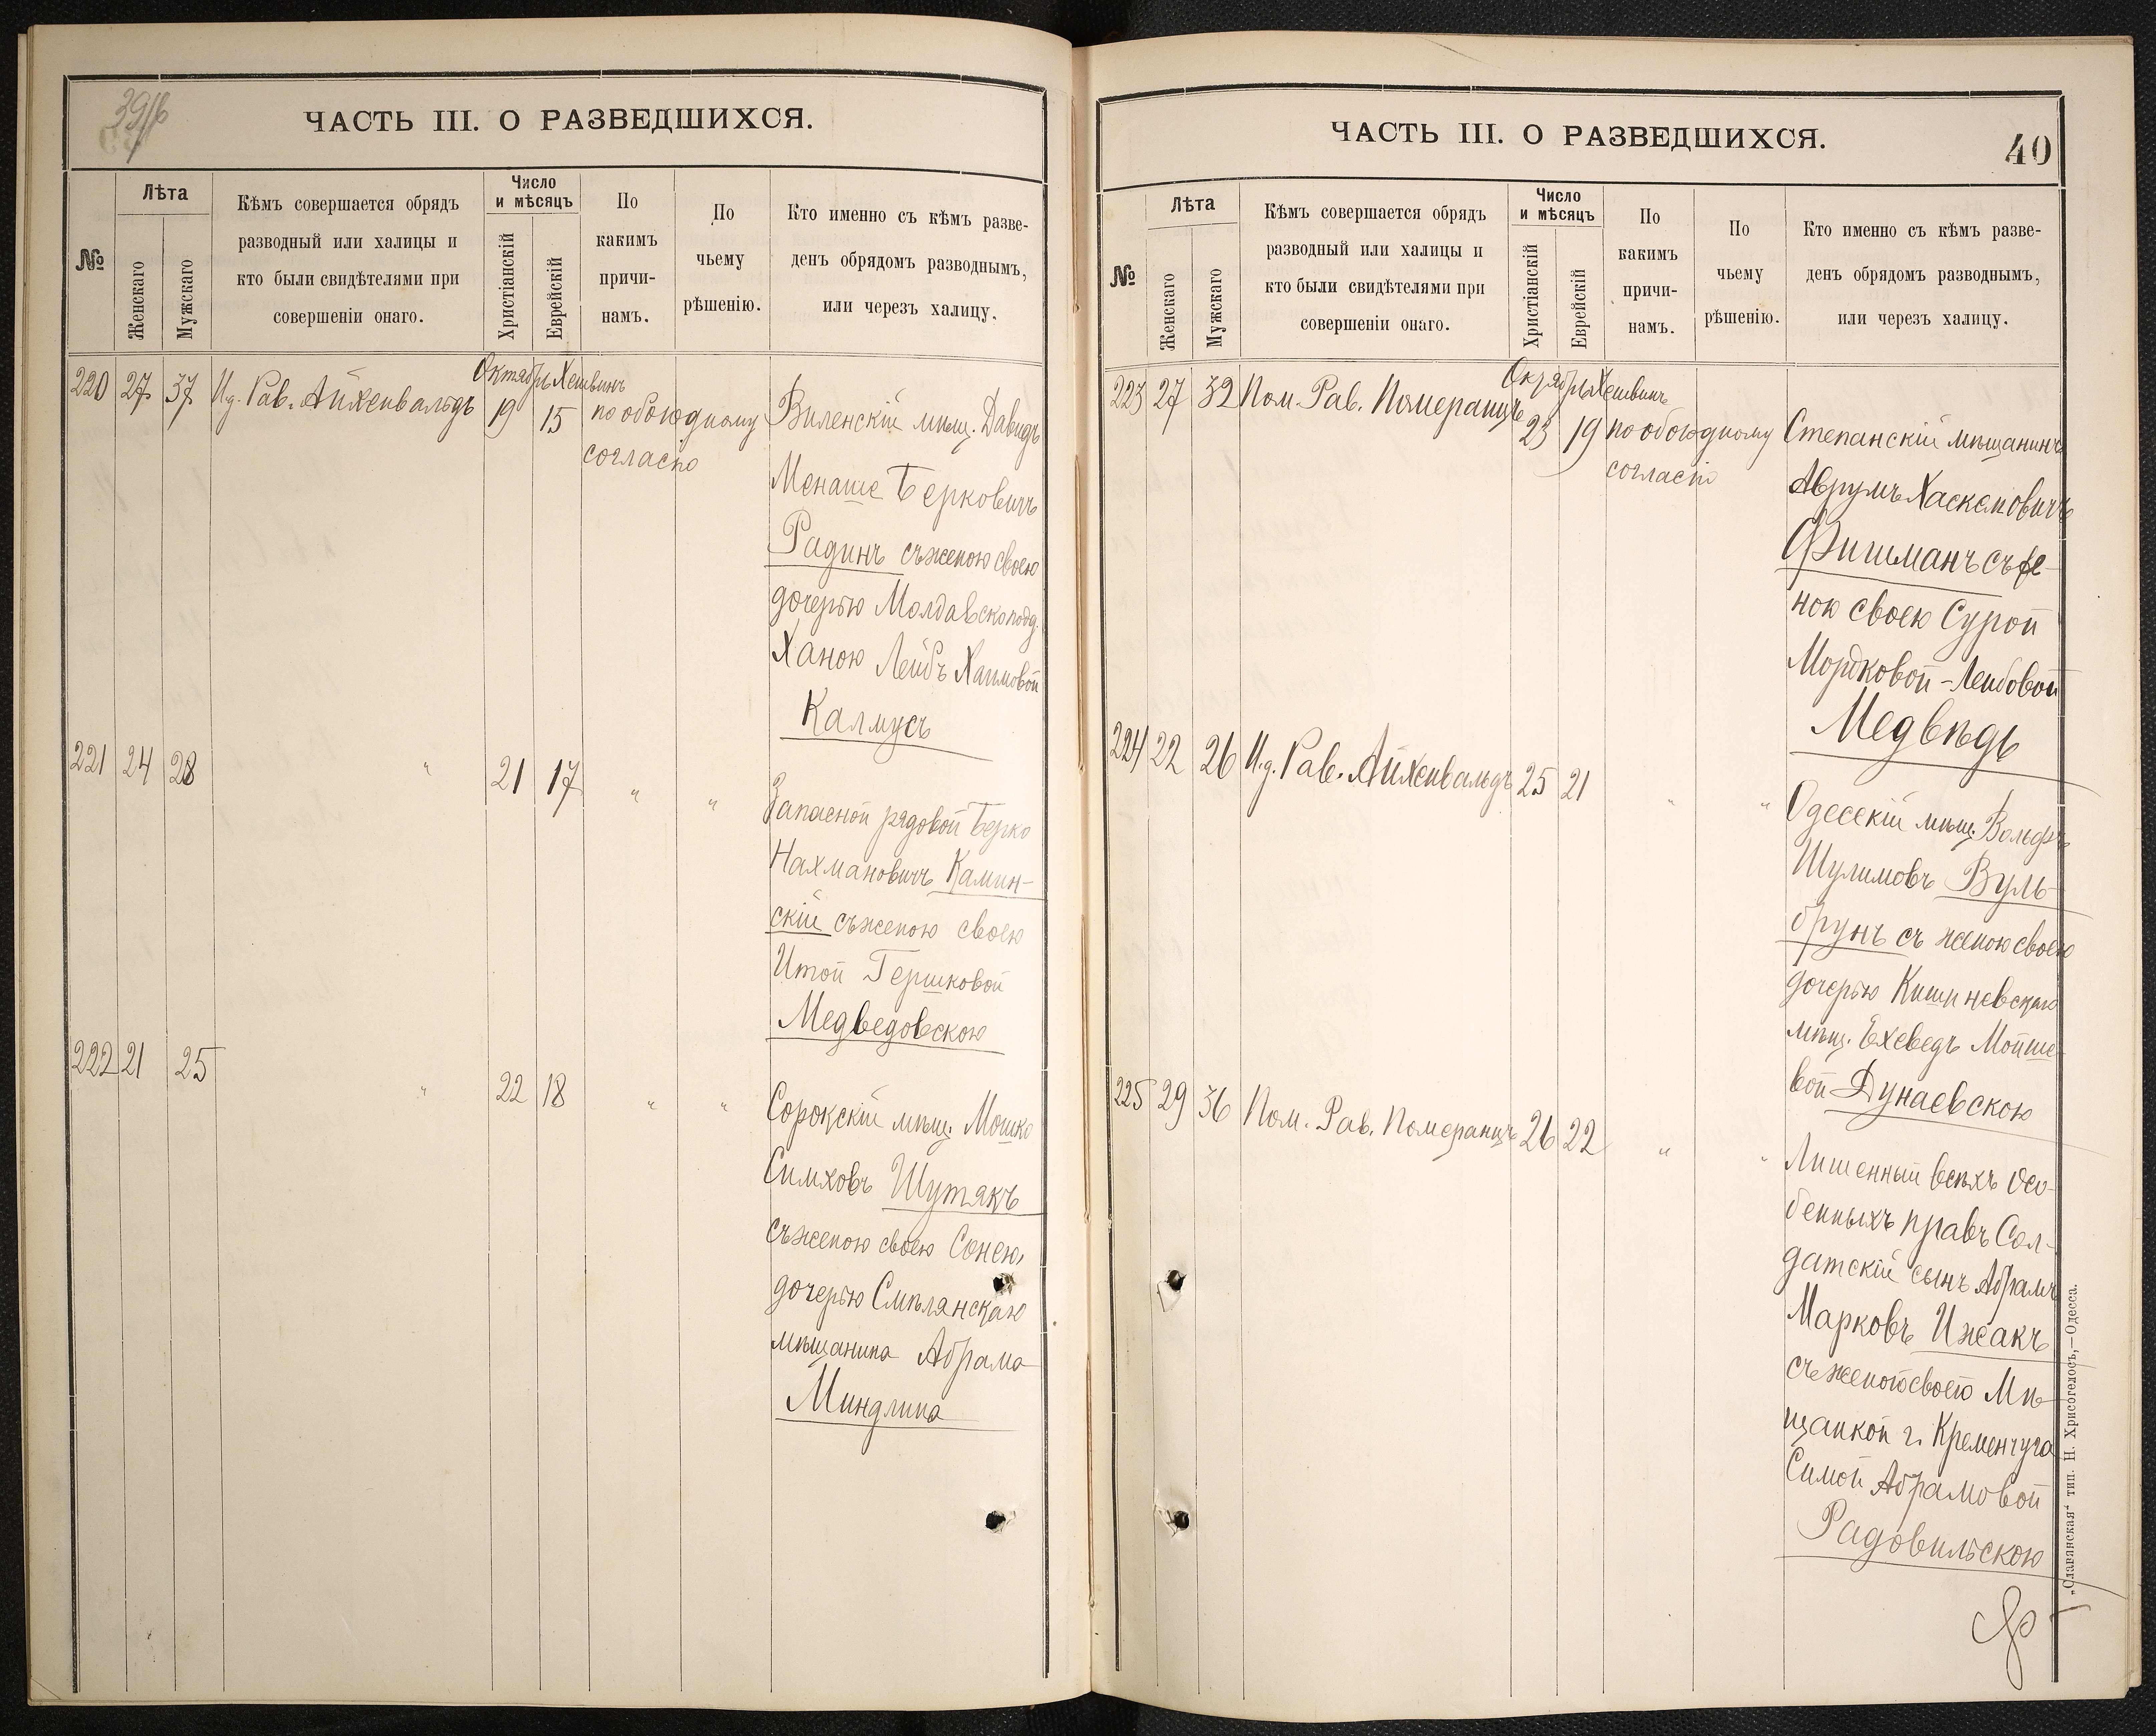 39/б
ЧАСТЬ III. О РАЗВЕДШИХСЯ.
№
Лѣта
Женскаго
Мужскаго
Кѣмъ совершается обрядъ
разводный или халицы и
кто были свидѣтелями при
совершеніи онаго.
Число
и мѣсяцъ
Христіанскій
Еврейскій
По
какимъ
причи-
намъ.
По
чьему
рѣшенію.
Кто именно съ кѣмъ разве-
денъ обрядомъ разводнымъ,
или черезъ халицу.
Октябрь Хешвинъ
220 27 37 И.д. Рав. Айхенвальдъ 19 15 по обоюдному
согласію
Виленскій мѣщ. Давидъ
Менаше Берковичъ
Радинъ съ женою своею
дочерью Молдавскоподд.
Ханою Лейбъ Хаимовой
Калмусъ
221 24 28 " 21 17 " "
Запасной рядовой Берко
Нахмановичъ Камин-
скій съ женою своею
Итой Гершковой
Медведовскою
222 21 25 " 22 18 " "
Сорокскій мѣщ. Мошко
Симховъ Шутякъ
съ женою своею Сонею,
дочерью Смѣлянскаго
мѣщанина Абрама
Миндлина
ЧАСТЬ III. О РАЗВЕДШИХСЯ.
40
№
Лѣта
Женскаго
Мужскаго
Кѣмъ совершается обрядъ
разводный или халицы и
кто были свидѣтелями при
совершеніи онаго.
Число
и мѣсяцъ
Христіанскій
Еврейскій
По
какимъ
причи-
намъ.
По
чьему
рѣшенію.
Кто именно съ кѣмъ разве-
денъ обрядомъ разводнымъ,
или черезъ халицу.
Октябрь Хешвинъ
223 27 32 Пом. Рав. Померанцъ 23 19 по обоюдному
согласію
Степанскій мѣщанинъ
Аврумъ Хаскелювичъ
Фишманъ съ же-
ною своею Сурой
Мордковой-Лейбовой
Медвѣдь
224 22 26 И.д. Рав. Айхенвальдъ 25 21 " "
Одесскій мѣщ. Вольфъ
Шулимовъ Вуль-
брунъ съ женою своею
дочерью Кишиневскаго
мѣщ. Ехеведъ Мойше-
вой Дунаевскою
225 29 36 Пом. Рав. Померанцъ 26 22 " "
Лишенный всѣхъ осо-
бенныхъ правъ Сол-
датскій сынъ Абрамъ
Марковъ Ижакъ
съ женою своею Мѣ-
щанкой г. Кременчуга
Симой Абрамовой
Радовильскою
„Славянская“ тип. Н. Хрисогелосъ,—Одесса.